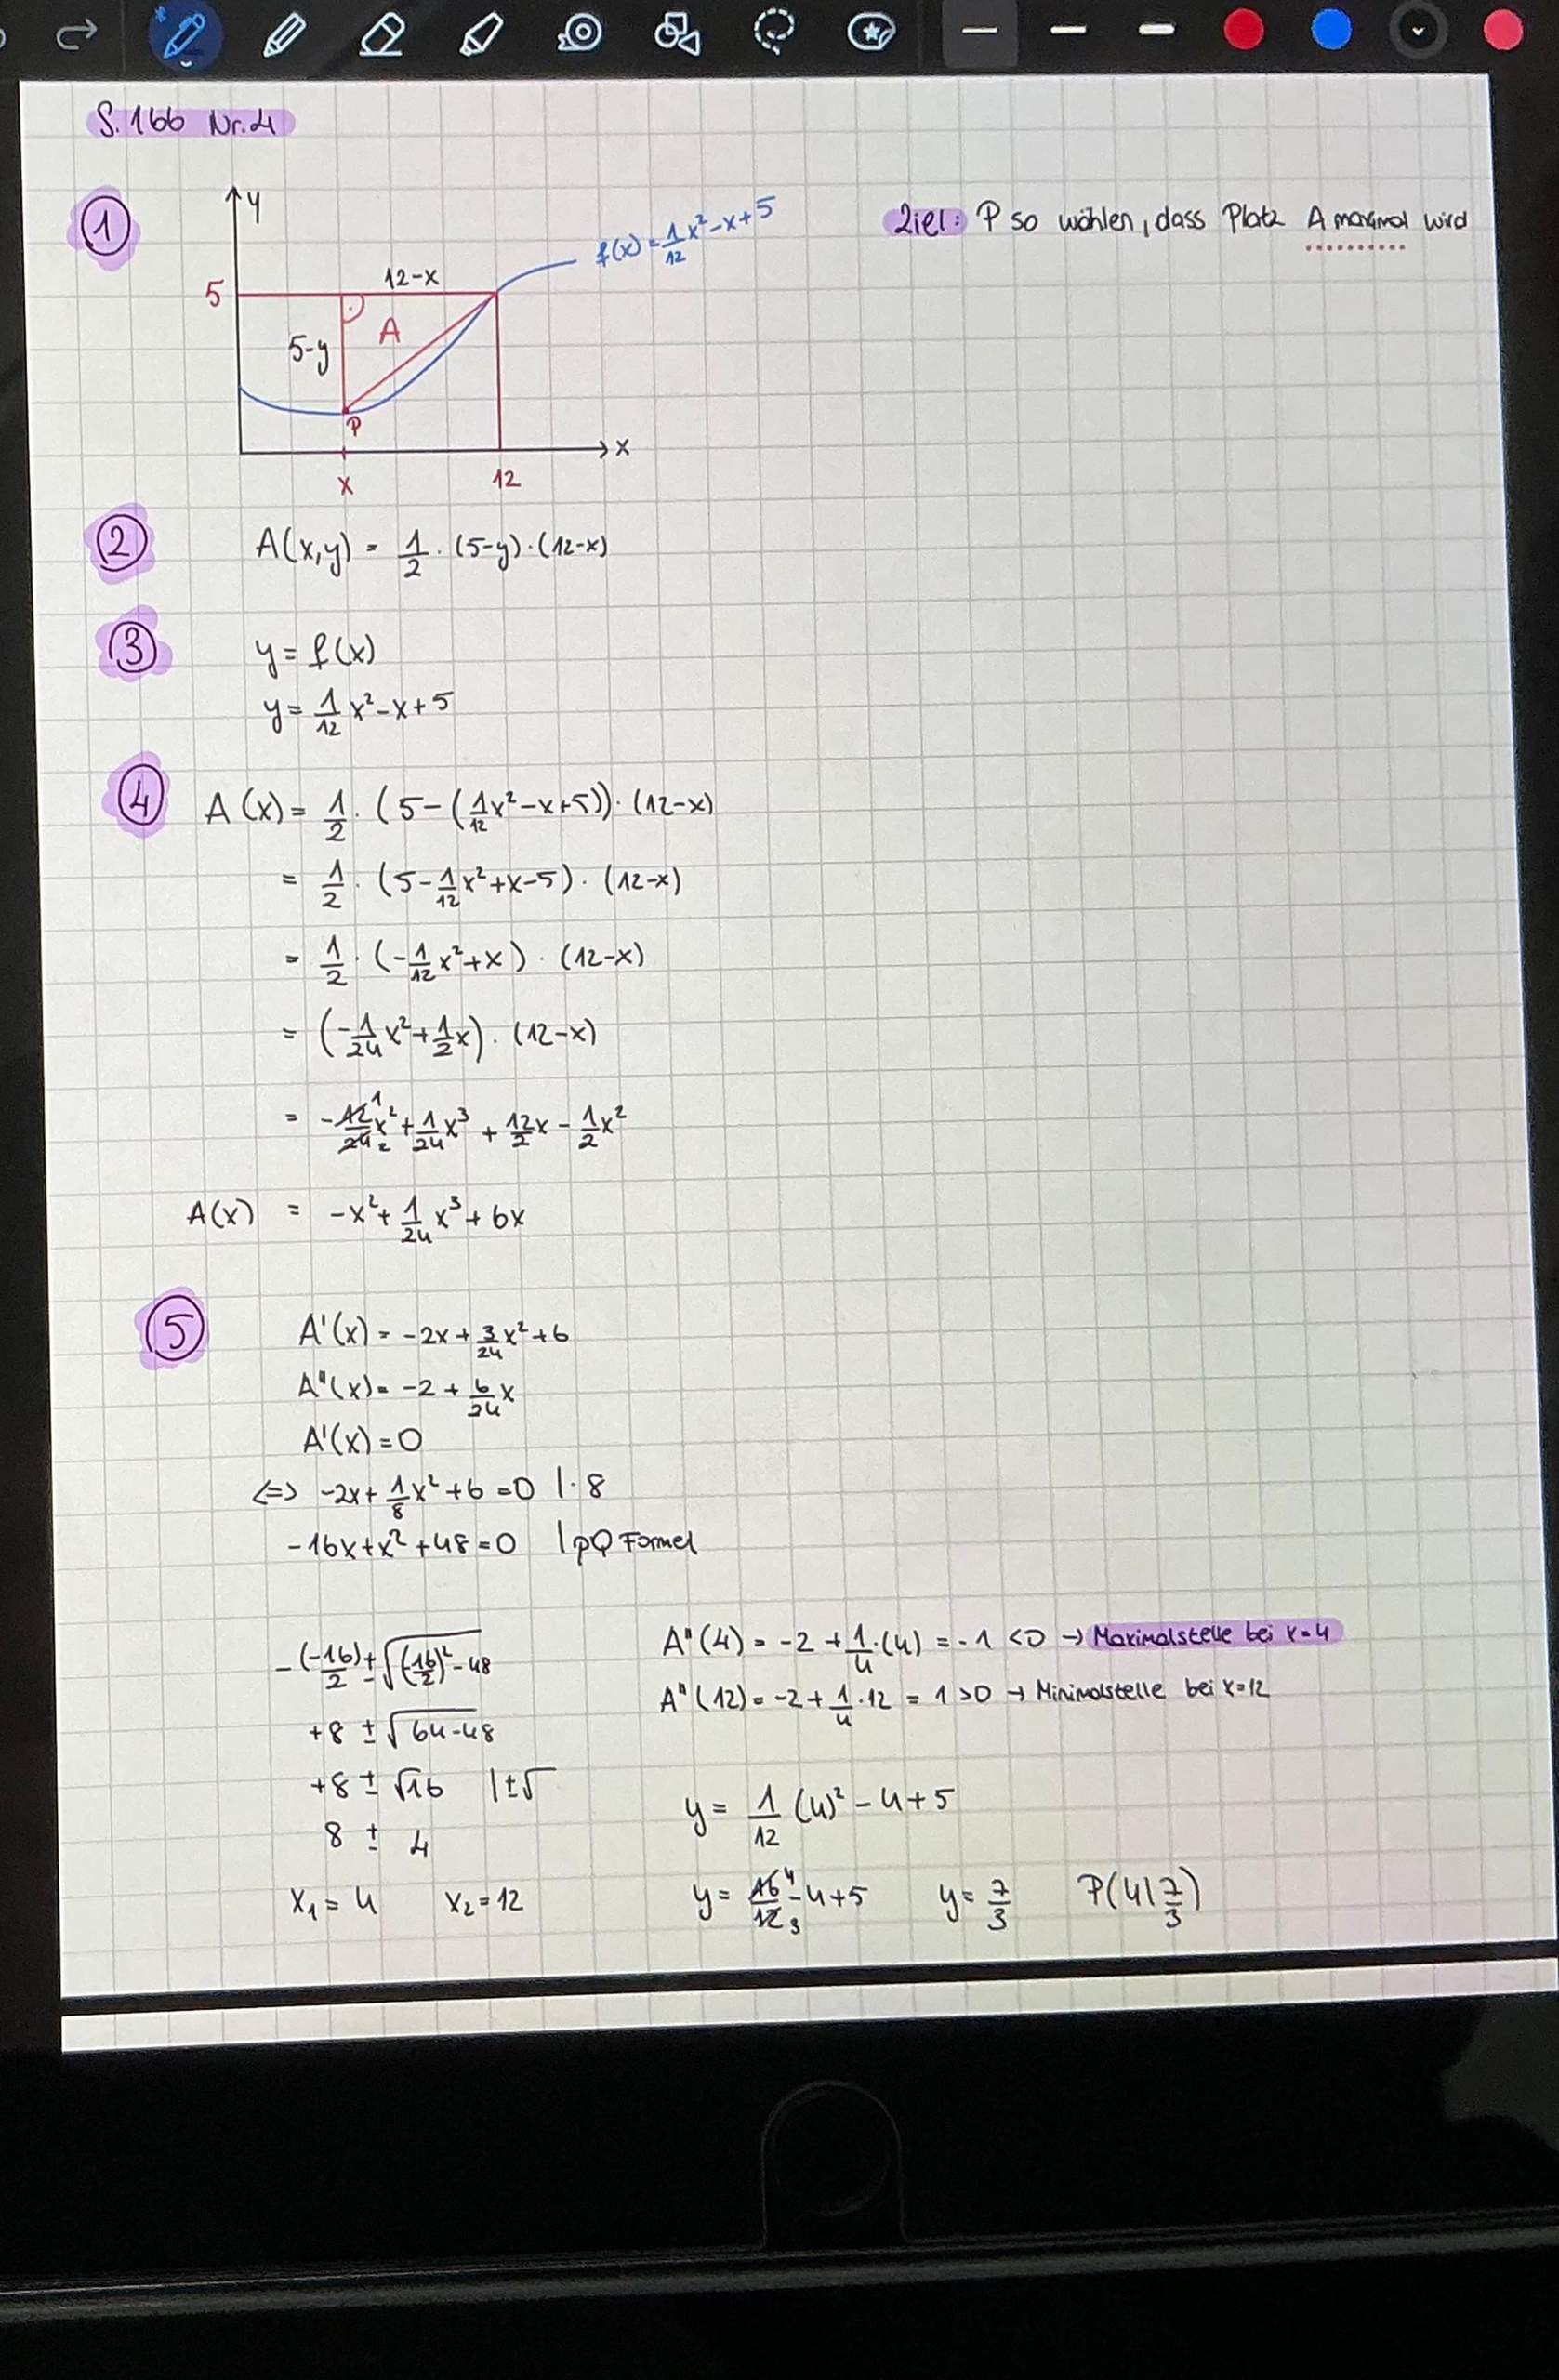 S.166 Nr.4
① y f(x)=1/12 x²-x+5 Ziel: P so wählen, dass Platz A maximal wird
12-x
5
A
5-y
P
x
x 12
② A(x,y) = 1/2 · (5-y)·(12-x)
③ y = f(x)
y = 1/12 x²-x+5
④ A(x) = 1/2 · (5-(1/12 x²-x+5)) · (12-x)
= 1/2 · (5-1/12 x²+x-5) · (12-x)
= 1/2 · (-1/12 x²+x) · (12-x)
= (-1/24 x²+1/2 x) · (12-x)
= -12/24 1/2 x² + 1/24 x³ + 12/2 x - 1/2 x²
A(x) = -x² + 1/24 x³ + 6x
⑤ A'(x) = -2x + 3/24 x² + 6
A"(x) = -2 + 6/24 x
A'(x) = 0
<=> -2x + 1/8 x² + 6 = 0 |· 8
-16x + x² + 48 = 0 | pQ Formel
-(-16)/2 ± √((-16/2)² - 48) A"(4) = -2 + 1/4 · (4) = -1 < 0 → Maximalstelle bei x=4
A"(12) = -2 + 1/4 · 12 = 1 > 0 → Minimalstelle bei x=12
+8 ± √64-48
+8 ± √16 | ±√ y = 1/12 (4)² - 4 + 5
8 ± 4
x₁ = 4 x₂ = 12 y = 16/12 4/3 - 4 + 5 y = 7/3 P(4|7/3)